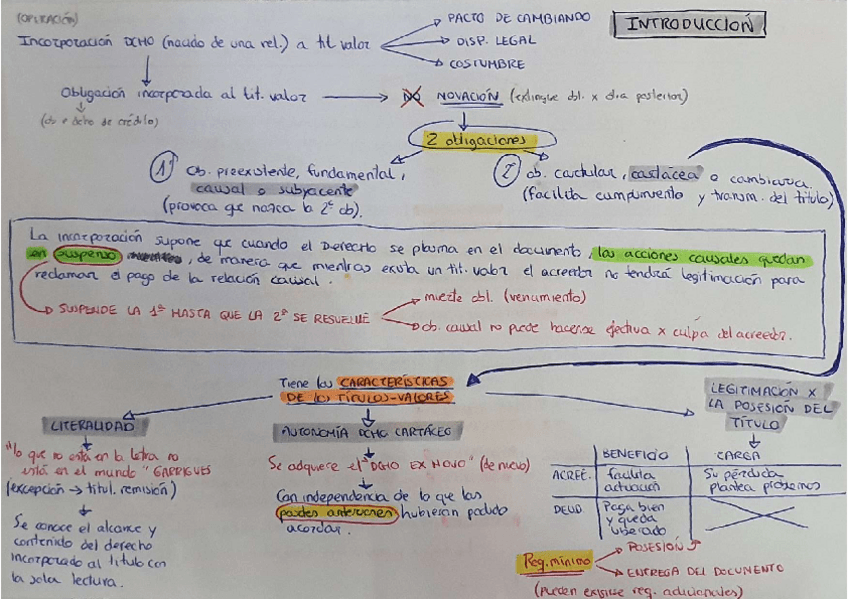 (OPERACIÓN)
INTRODUCCIÓN
Incorporación DCHO (nacido de una rel.) a tit valor
PACTO DE CAMBIANDO
DISP. LEGAL
COSTUMBRE
Obligación incorporada al tit. valor
NO NOVACIÓN (extingue obl. x otra posterior)
(ob o dcho de crédito)
2 obligaciones
1ª ob. preexistente, fundamental,
causal o subyacente
(provoca que nazca la 2ª ob).
2ª ob. cartular, cartácea o cambiaria
(facilita cumplimiento y transm. del título)
La incorporación supone que cuando el Derecho se plasma en el documento, las acciones causales quedan
en suspenso, de manera que mientras exista un tit. valor el acreedor no tendrá legitimación para
reclamar el pago de la relación causal.
SUSPENDE LA 1ª HASTA QUE LA 2ª SE RESUELVE
muerte obl. (vencimiento)
ob. causal no puede hacerse efectiva x culpa del acreedor.
Tiene las CARACTERÍSTICAS
DE los TÍTULOS-VALORES
LITERALIDAD
"lo que no está en la letra no
está en el mundo" GARRIGUES
(excepción → titul. remisión)
Se conoce el alcance y
contenido del derecho
incorporado al título con
la sola lectura.
AUTONOMÍA DCHO CARTÁCEO
Se adquiere el "DCHO EX NOVO" (de nuevo)
Con independencia de lo que las
partes anteriores hubieran podido
acordar.
LEGITIMACIÓN X
LA POSESIÓN DEL
TÍTULO
BENEFICIO CARGA
ACREE. facilita actuación Su pérdida plantea problemas
DEUD. Paga bien y queda liberado
Req. mínimo
POSESIÓN
ENTREGA DEL DOCUMENTO
(pueden exigirse req. adicionales)